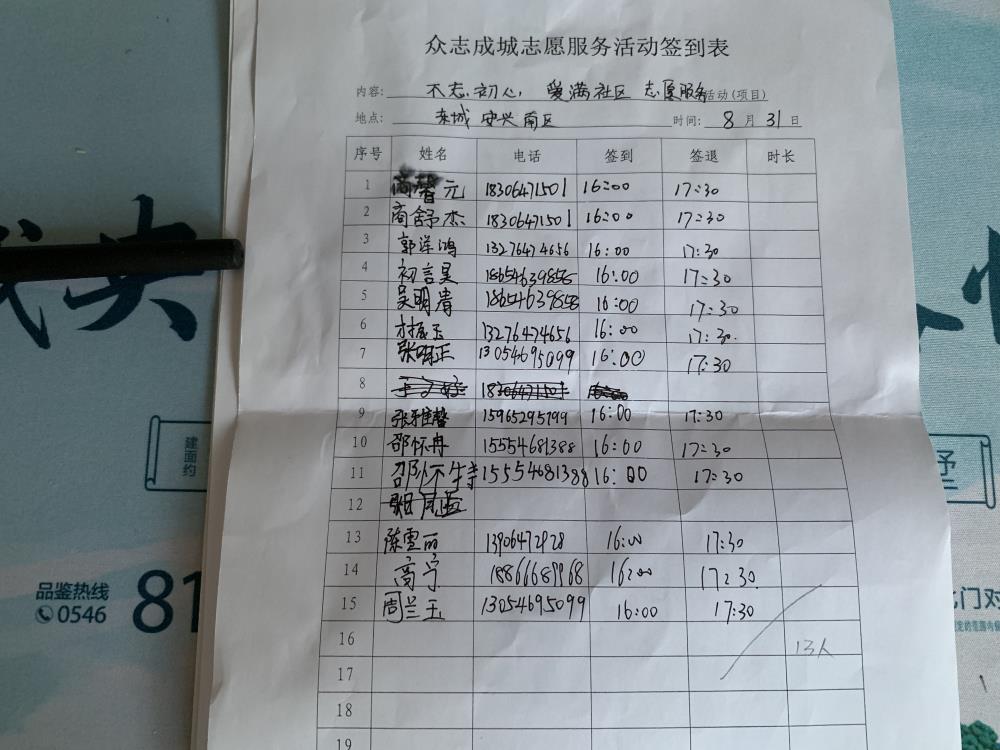 众志成城志愿服务活动签到表
内容: 不忘初心, 爱满社区 志愿服务活动(项目)
地点: 东城 安兴南区 时间: 8月31日
序号 姓名 电话 签到 签退 时长
1 商馨元 18306471501 16:00 17:30
2 商舒杰 18306471501 16:00 17:30
3 郭洋鸿 13276474656 16:00 17:30
4 初言昊 18654639858 16:00 17:30
5 吴明倩 18654639858 16:00 17:30
6 13276474656 16:00 17:30
7 张明正 13054695099 16:00 17:30
8
9 张雅馨 15965295799 16:00 17:30
10 邵怀冉 15554681388 16:00 17:30
11 邵怀特 15554681388 16:00 17:30
12
13 陈雪丽 13906472928 16:00 17:30
14 高宁 18866689968 16:00 17:30
15 周兰玉 13054695099 16:00 17:30
16 13人
17
18
19
建面约
品鉴热线
0546 81